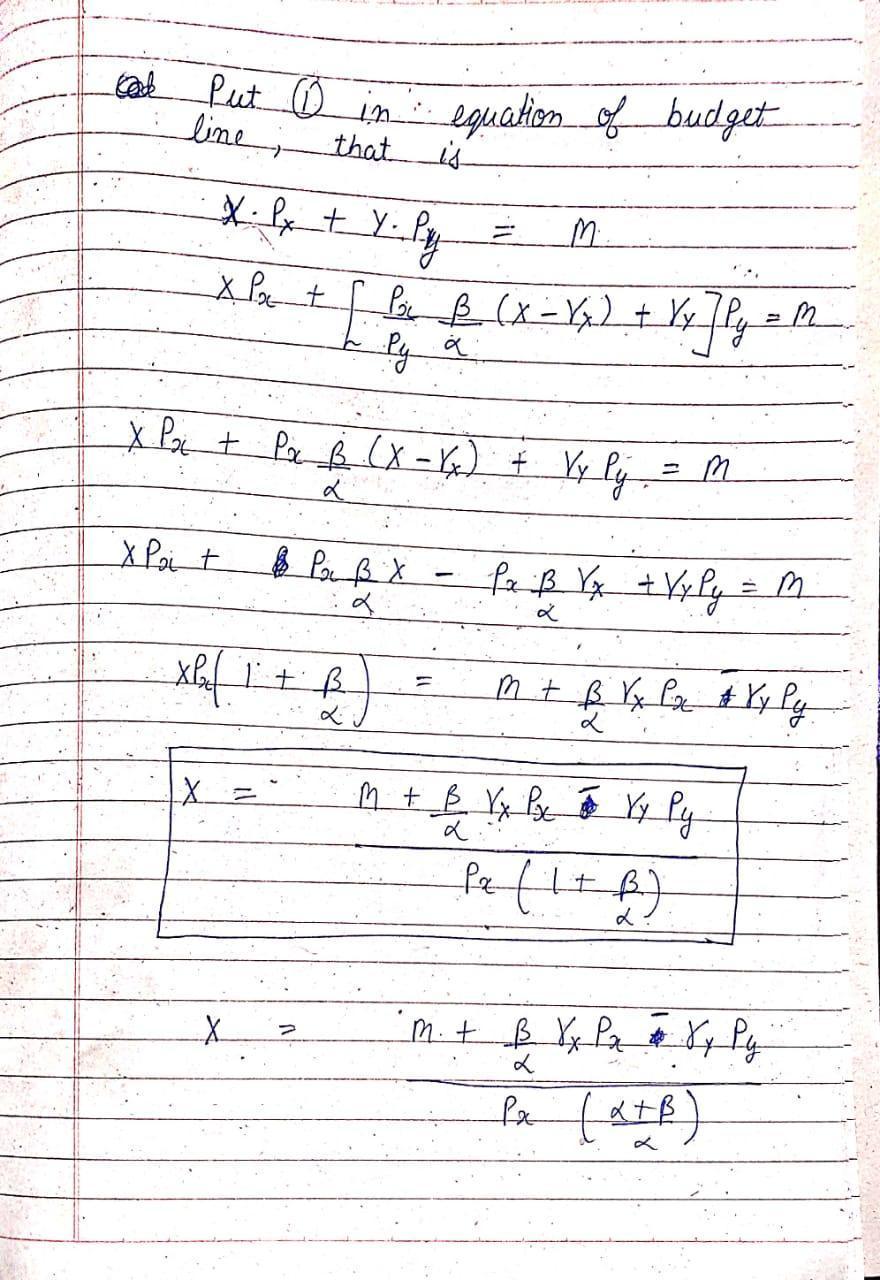 Put ① in equation of budget
line, that is
X. Px + Y. Py = M
X Px + [ Px/Py β/α (X - γx) + γy ] Py = M
X Px + Px β/α (X - γx) + γy Py = M
X Px + Px β/α X - Px β/α γx + γy Py = M
XPx ( 1 + β/α ) = M + β/α γx Px - γy Py
X = M + β/α γx Px - γy Py
Px ( 1 + β/α )
X = M + β/α γx Px - γy Py
Px ( α+β/α )